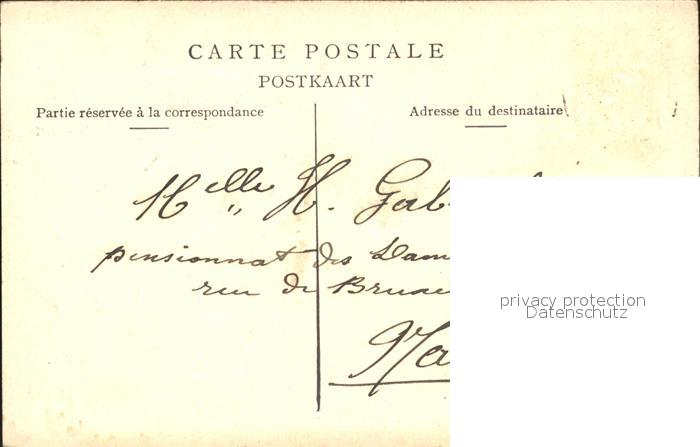 CARTE POSTALE
POSTKAART
Partie réservée à la correspondance
Adresse du destinataire
Melle H.
pensionnat des
rue de
privacy protection
Datenschutz